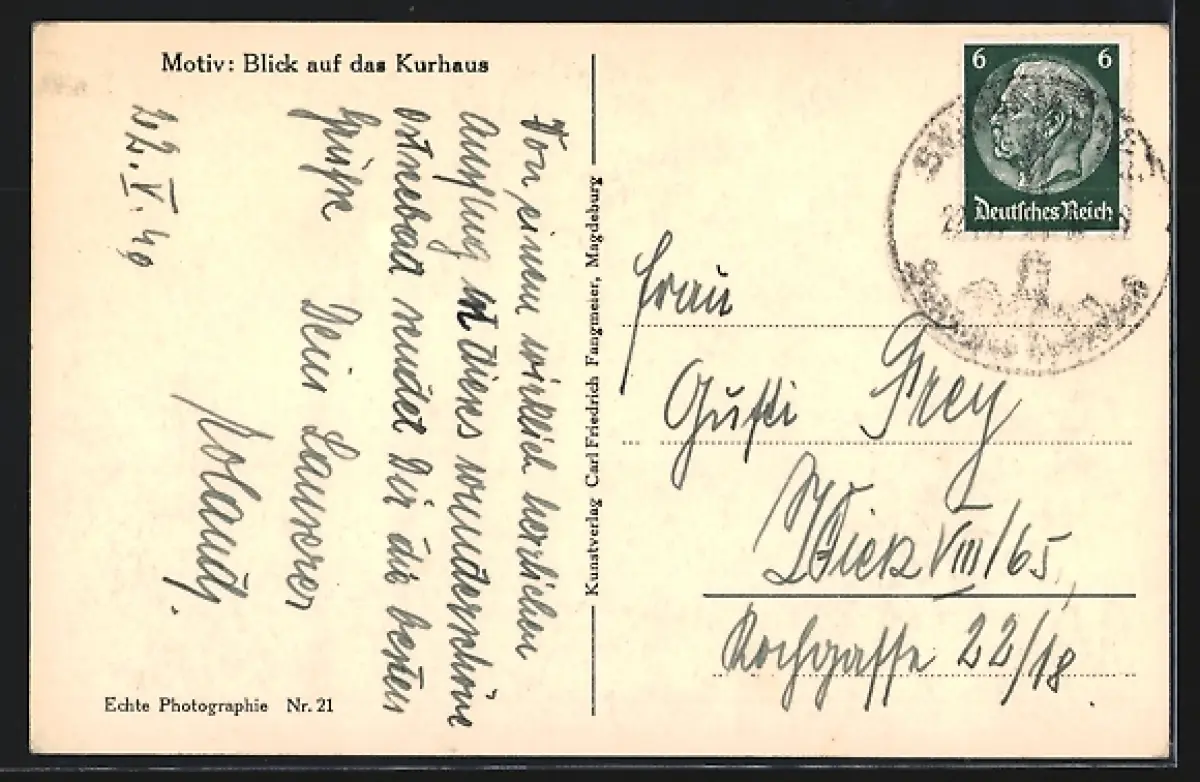 Motiv: Blick auf das Kurhaus
Von einem wirklich herrlichen
Ausflug in dieses wunderschöne
Ostseebad sendet Dir die besten
Grüße
Dein
22. V. 40
Echte Photographie Nr. 21
Kunstverlag Carl Friedrich Fangmeier, Magdeburg
6 6
Deutsches Reich
Frau
Gusti Frey
Wien VIII/65,
Kochgasse 22/18.